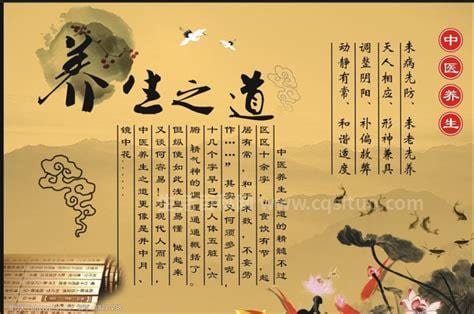 养生之道
中医养生
未病先防、未老先养
天人相应、形神兼具
调整阴阳、补偏救弊
动静有常、和谐适度
中医养生之道的精髓不过
区区十余字,“食饮有节,起
居有常,和以术数,不妄劳
作……”其实又何须多言呢,
十几个字早已把人体五脏、六
腑、精气神的调理通通概括了。
但纵使如此浅显易懂,做起来
又谈何容易!现代人而言,
中医养生之道更像是井中月、
镜中花……